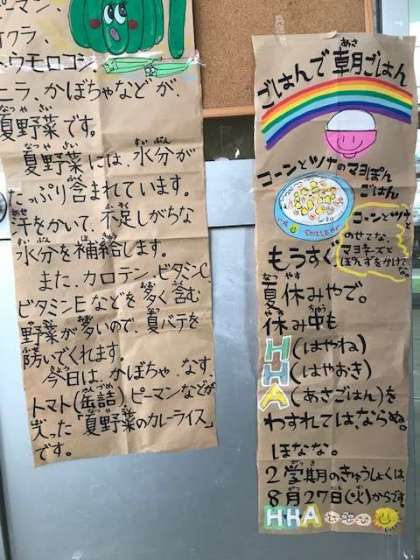 ピーマン、
オクラ、
トウモロコシ、
ニラ、かぼちゃなどが、
夏野菜です。
夏野菜には、水分が
たっぷり含まれています。
汗をかいて、不足しがちな
水分を補給します。
また、カロテン、ビタミンC
ビタミンEなどを多く含む
野菜が多いので、夏バテを
防いでくれます。
今日は、かぼちゃ、なす、
トマト(缶詰)、ピーマンなどが
入った「夏野菜のカレーライス」
です。
ごはんで朝ごはん
コーンとツナのマヨぽん
ごはん
コーンとツナ
のせてな、
マヨネーズと
ぽんずをかけて
もうすぐ
夏休みやで。
休み中も
H(はやね)
H(はやおき)
A(あさごはん)を
わすれてはならぬ。
ほなな。
2学期のきゅうしょくは、
8月27日(火)からです。
HHA